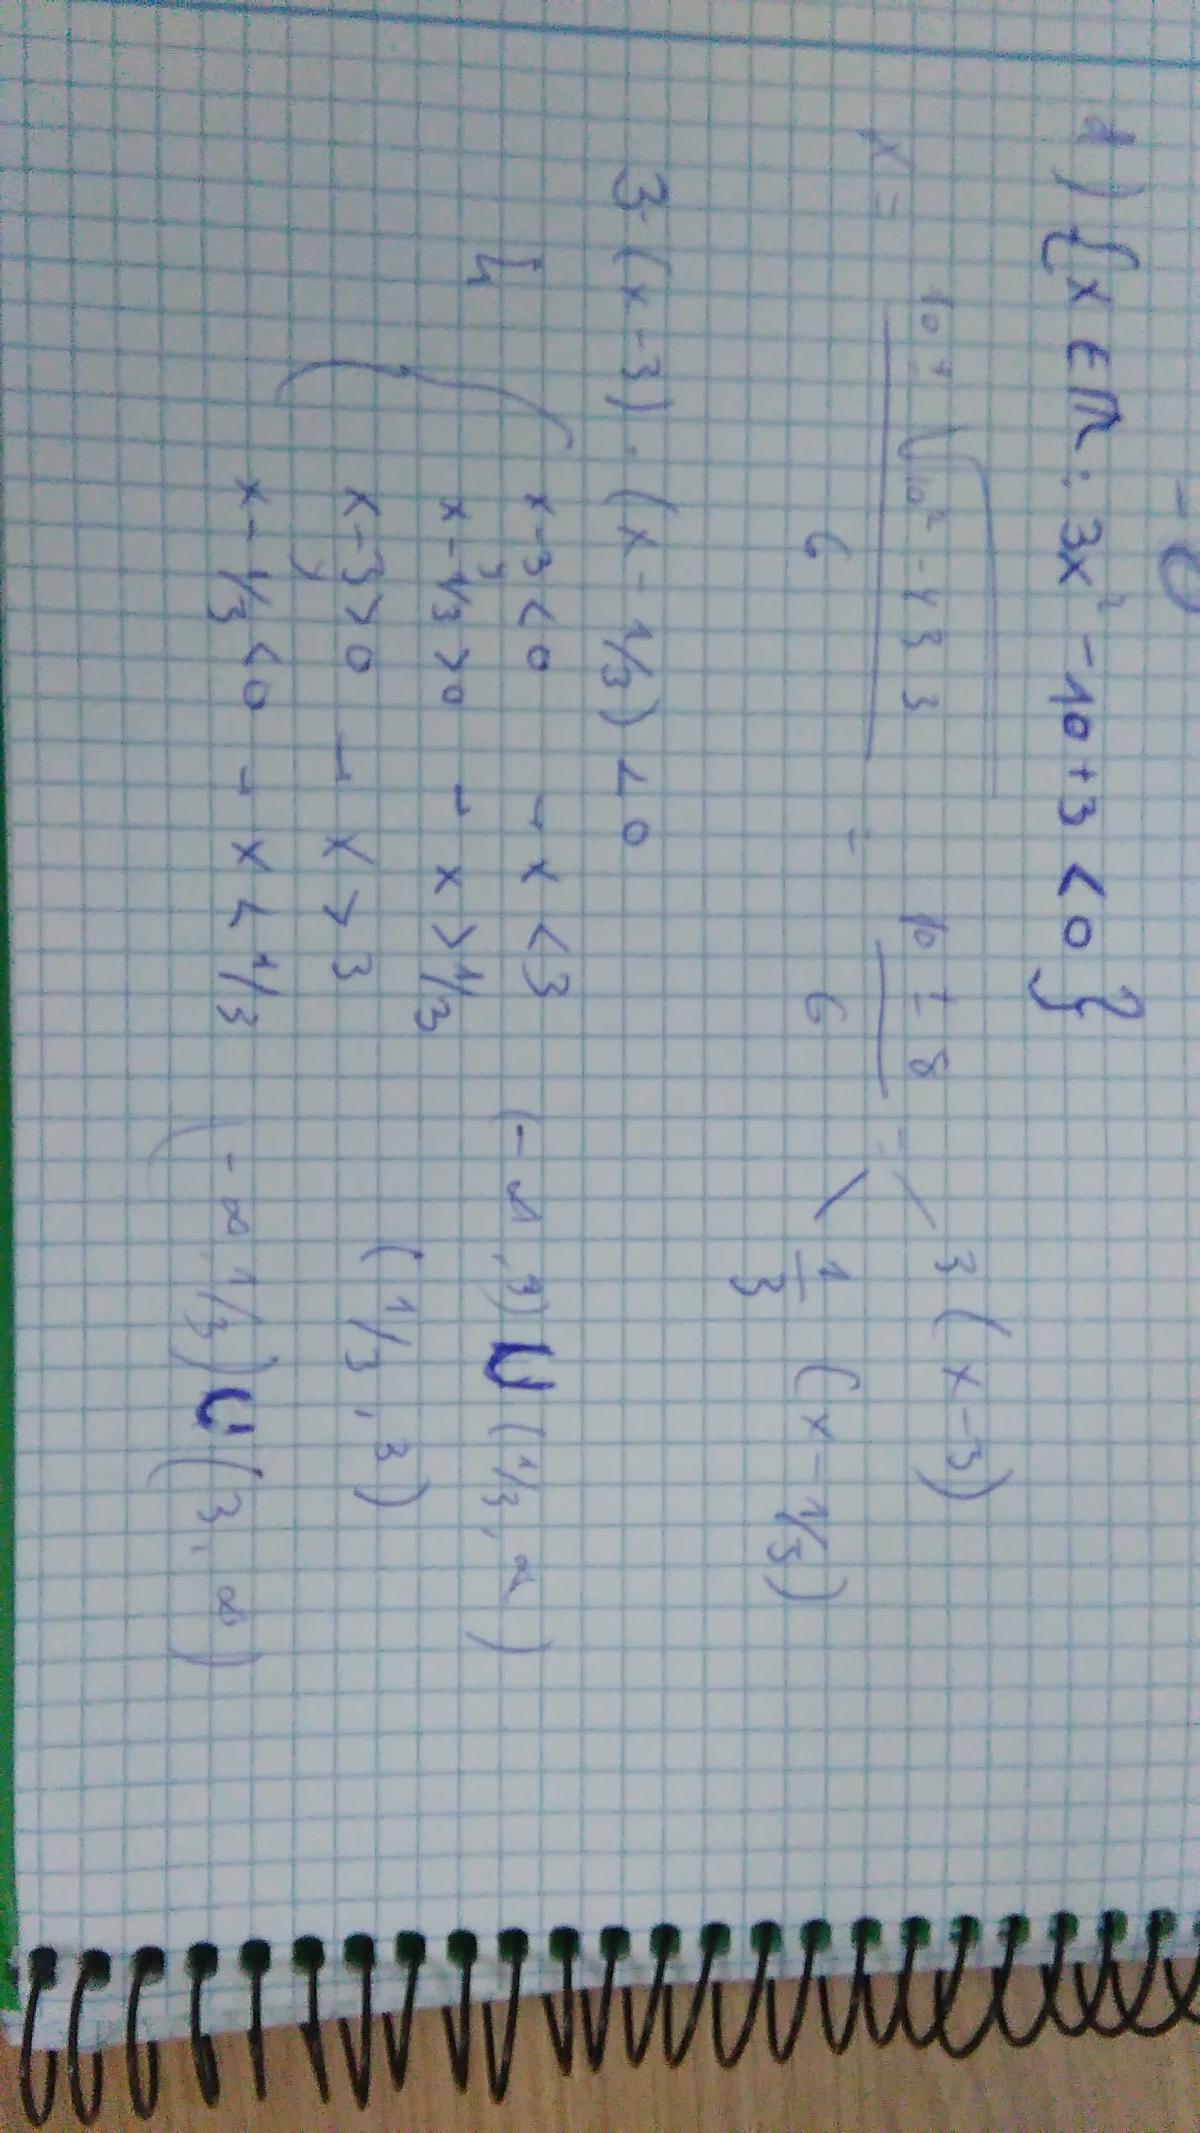 d) {x ∈ ℝ : 3x² - 10 + 3 < 0}
x = 10 ± √10² - 4 3 3 / 6 = 10 ± 8 / 6 =
3 (x - 3)
1/3 (x - 1/3)
3 · (x - 3) · (x - 1/3) < 0
x - 3 < 0 → x < 3
x - 1/3 > 0 → x > 1/3
(-∞, 3) U (1/3, ∞)
x - 3 > 0 → x > 3
(1/3, 3)
x - 1/3 < 0 → x < 1/3
(-∞, 1/3) U (3, ∞)